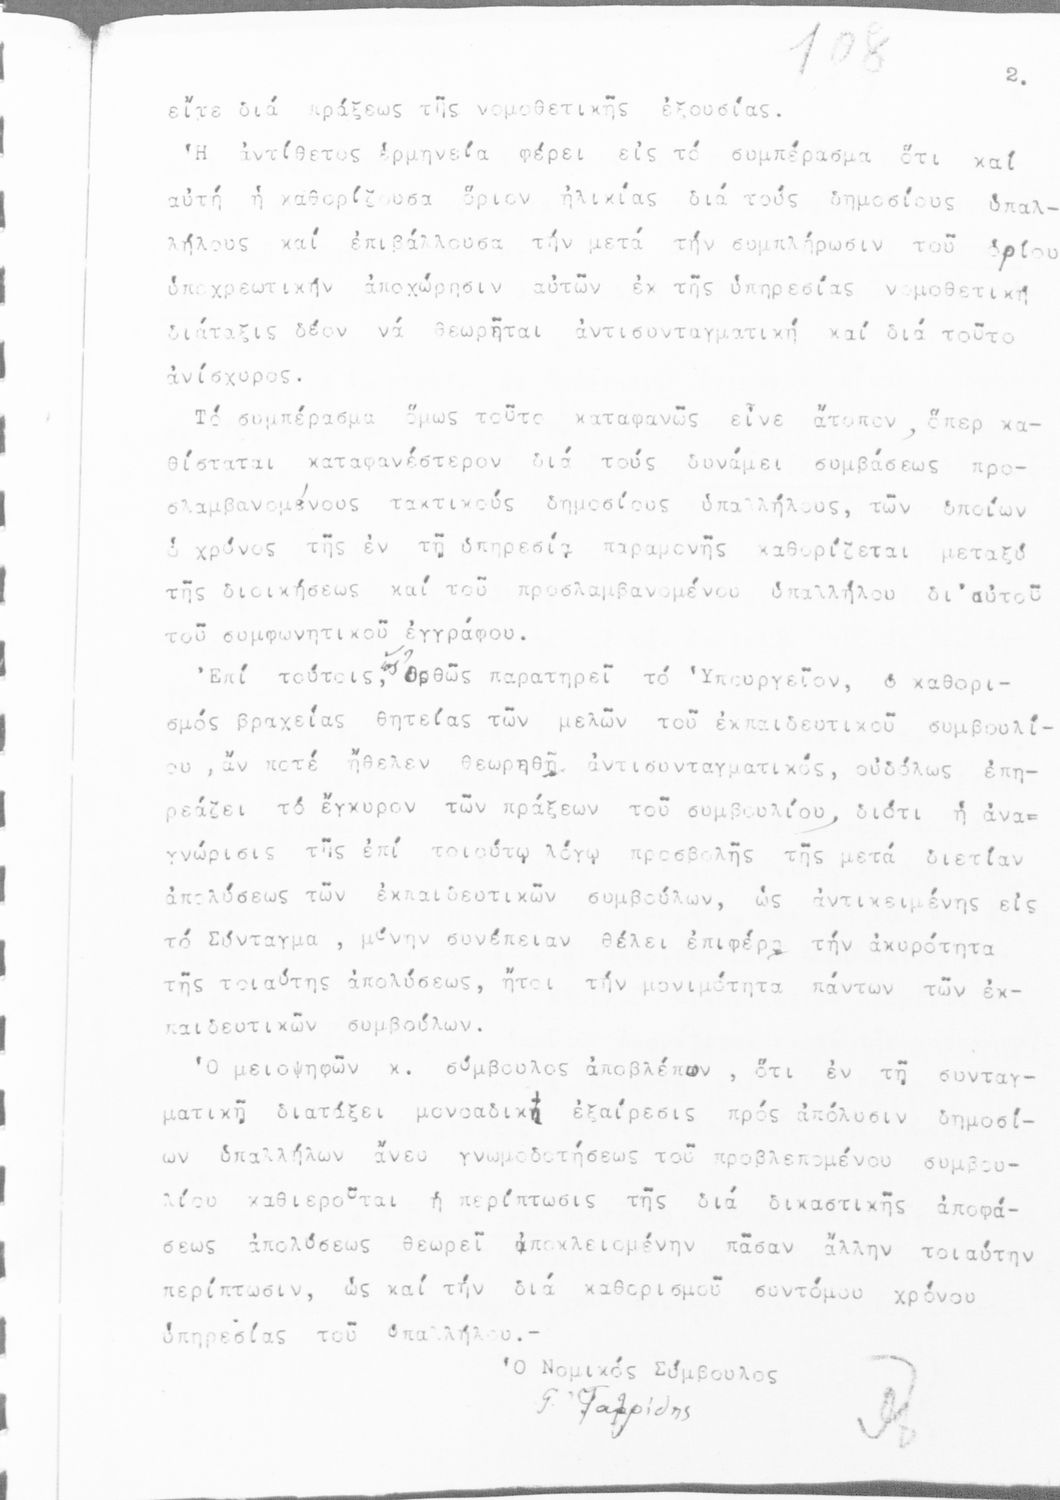 108
2.
εἴτε διά πράξεως τῆς νομοθετικῆς ἐξουσίας.
Ἡ ἀντίθετος ἑρμηνεία φέρει εἰς τό συμπέρασμα ὅτι καί
αὐτή ἡ καθορίζουσα ὅριον ἡλικίας διά τούς δημοσίους ὑπαλ-
λήλους καί ἐπιβάλλουσα τήν μετά τήν συμπλήρωσιν τοῦ ὁρίου
ὑποχρεωτικήν ἀποχώρησιν αὐτῶν ἐκ τῆς ὑπηρεσίας νομοθετική
διάταξις δέον νά θεωρῆται ἀντισυνταγματική καί διά τοῦτο
ἀνίσχυρος.
Τό συμπέρασμα ὅμως τοῦτο καταφανῶς εἶνε ἄτοπον, ὅπερ κα-
θίσταται καταφανέστερον διά τούς δυνάμει συμβάσεως προ-
σλαμβανομένους τακτικούς δημοσίους ὑπαλλήλους, τῶν ὁποίων
ὁ χρόνος τῆς ἐν τῇ ὑπηρεσίᾳ παραμονῆς καθορίζεται μεταξύ
τῆς διοικήσεως καί τοῦ προσλαμβανομένου ὑπαλλήλου δι'αὐτοῦ
τοῦ συμφωνητικοῦ ἐγγράφου.
Ἐπί τούτοις, ὡς ὀρθῶς παρατηρεῖ τό Ὑπουργεῖον, ὁ καθορι-
σμός βραχείας θητείας τῶν μελῶν τοῦ ἐκπαιδευτικοῦ συμβουλί-
ου, ἄν ποτέ ἤθελεν θεωρηθῇ ἀντισυνταγματικός, οὐδόλως ἐπη-
ρεάζει τό ἔγκυρον τῶν πράξεων τοῦ συμβουλίου, διότι ἡ ἀνα=
γνώρισις τῆς ἐπί τοιούτῳ λόγῳ προσβολῆς τῆς μετά διετίαν
ἀπολύσεως τῶν ἐκπαιδευτικῶν συμβούλων, ὡς ἀντικειμένης εἰς
τό Σύνταγμα , μόνην συνέπειαν θέλει ἐπιφέρῃ τήν ἀκυρότητα
τῆς τοιαύτης ἀπολύσεως, ἤτοι τήν μονιμότητα πάντων τῶν ἐκ-
παιδευτικῶν συμβούλων.
Ὁ μειοψηφῶν κ. σύμβουλος ἀποβλέπων , ὅτι ἐν τῇ συνταγ-
ματικῇ διατάξει μονοαδική ἐξαίρεσις πρός ἀπόλυσιν δημοσί-
ων ὑπαλλήλων ἄνευ γνωμοδοτήσεως τοῦ προβλεπομένου συμβου-
λίου καθιεροῦται ἡ περίπτωσις τῆς διά δικαστικῆς ἀποφά-
σεως ἀπολύσεως θεωρεῖ ἀποκλειομένην πᾶσαν ἄλλην τοιαύτην
περίπτωσιν, ὡς καί τήν διά καθορισμοῦ συντόμου χρόνου
ὑπηρεσίας τοῦ ὑπαλλήλου.-
Ὁ Νομικός Σύμβουλος